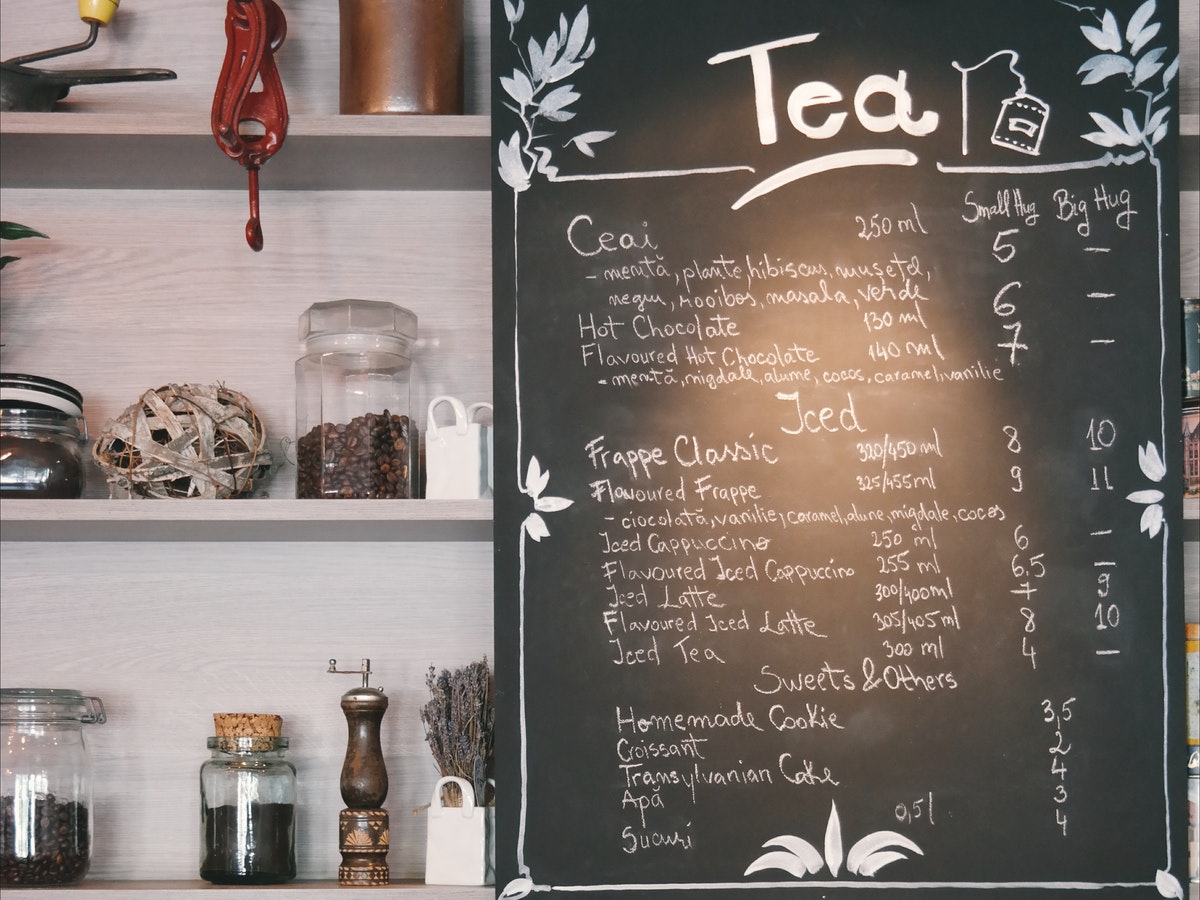 Tea
Small Hug Big Hug
Ceai 250 ml 5 –
- mentă, plante, hibiscus, mușețel,
negru, rooibos, masala, verde
Hot Chocolate 130 ml 6 –
Flavoured Hot Chocolate 140 ml 7 –
- mentă, migdale, alune, cocos, caramel, vanilie
Iced
Frappe Classic 320/450 ml 8 10
Flavoured Frappe 325/455 ml 9 11
- ciocolată, vanilie, caramel, alune, migdale, cocos
Iced Cappuccino 250 ml 6 –
Flavoured Iced Cappuccino 255 ml 6,5 –
Iced Latte 300/400 ml 7 9
Flavoured Iced Latte 305/405 ml 8 10
Iced Tea 300 ml 4 –
Sweets & Others
Homemade Cookie 3,5
Croissant 2
Transylvanian Cake 4
Apă 3
Sucuri 0,5 l 4